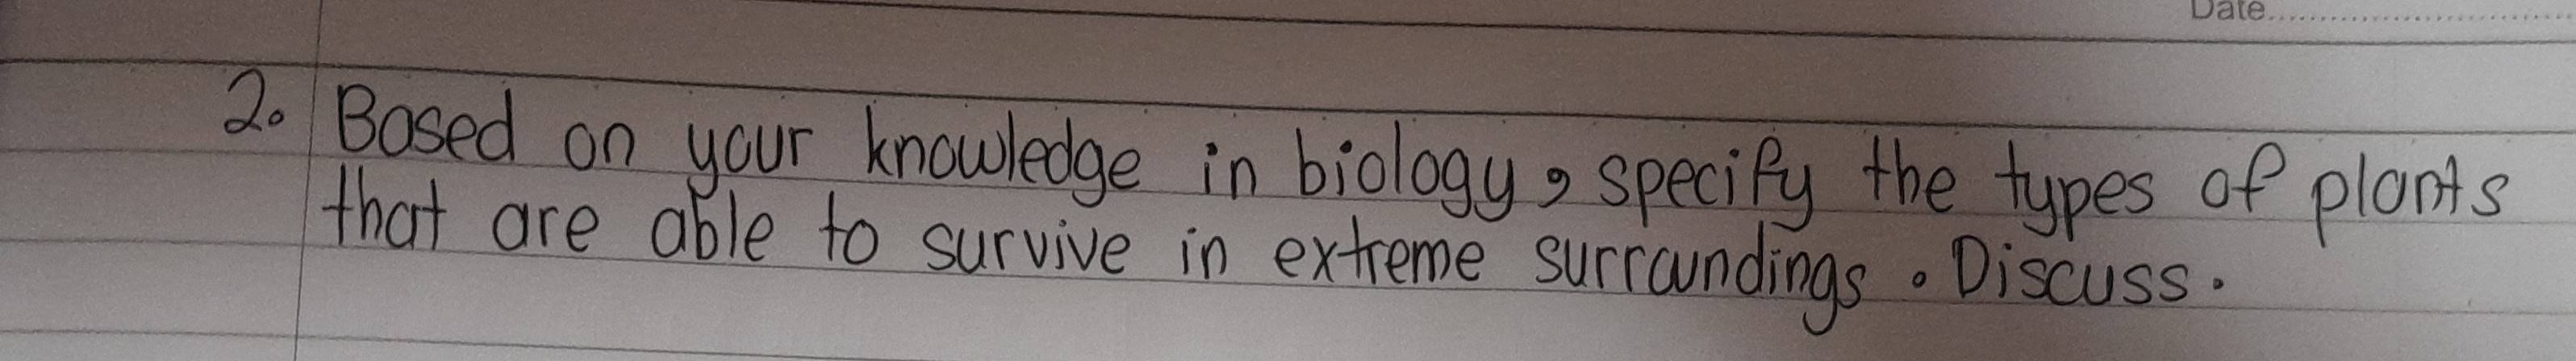 Date
2. Based on your knowledge in biology, specify the types of plants
that are able to survive in extreme surroundings. Discuss.